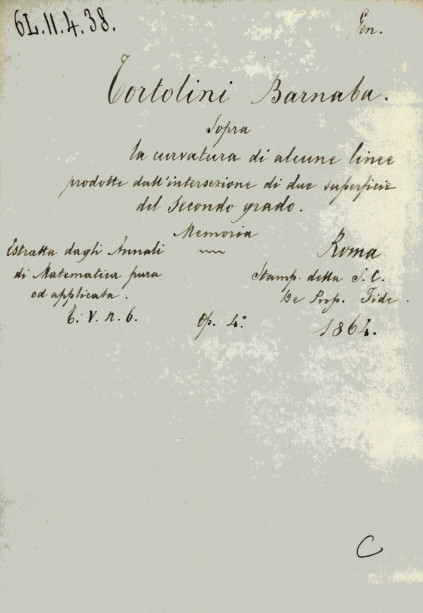 6L.11.4.38.
Gen.
Tortolini Barnaba.
Sopra
la curvatura di alcune linee
prodotte dall'intersezione di due superficie
del secondo grado.
Memoria
Estratta dagli Annali
di Matematica pura
ed applicata.
T. V. n. 6.
Op. 4º
Roma
Stamp. della S. C.
De Prop. Fide.
1864.
C